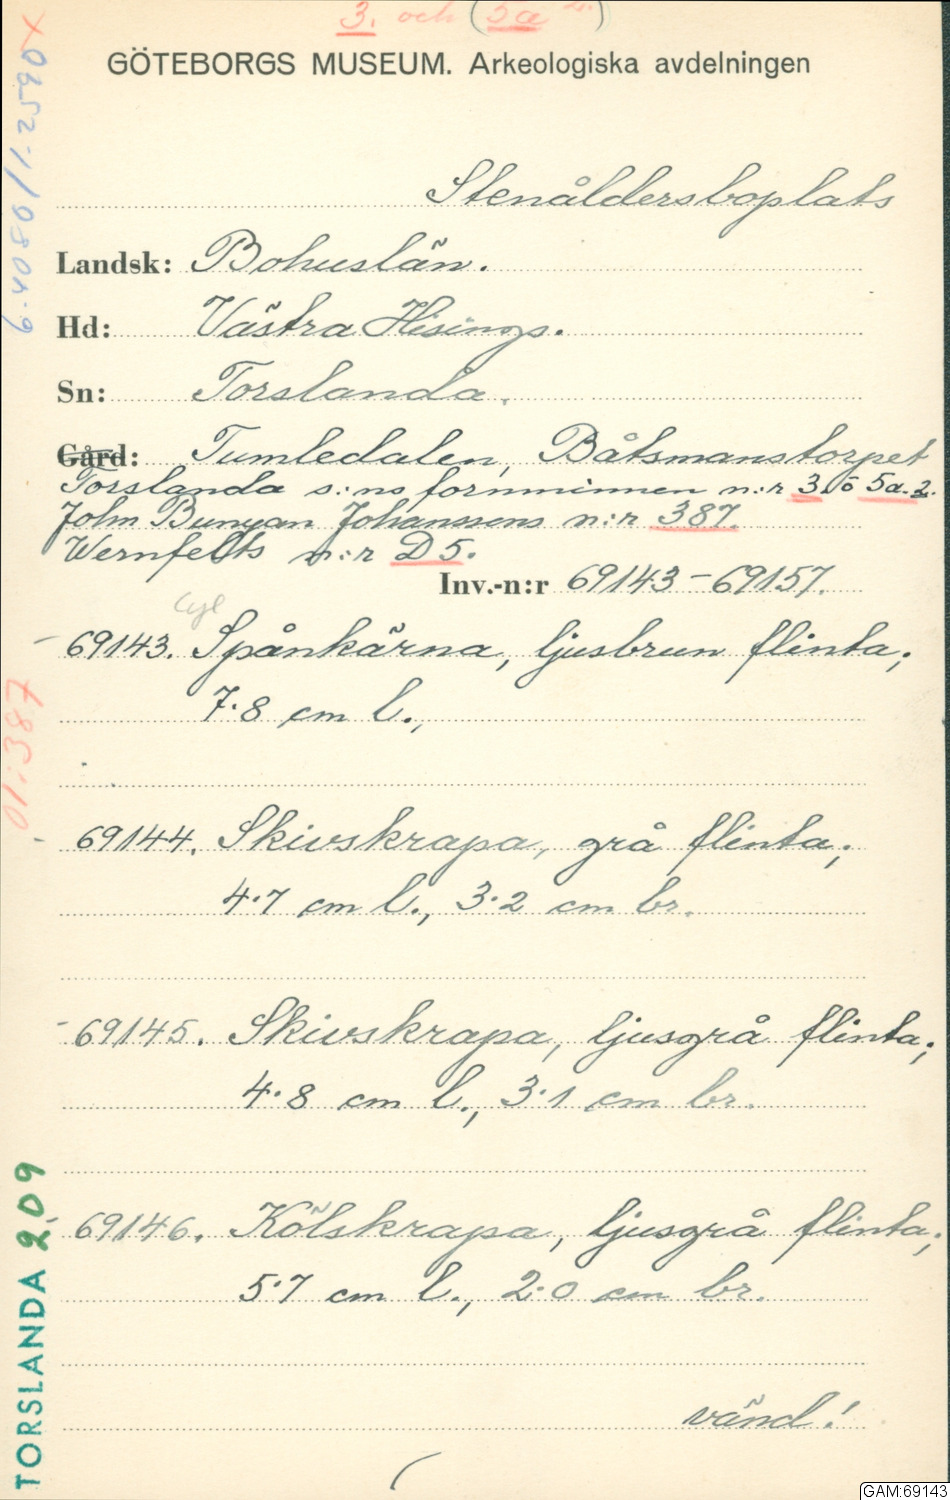 3. och (5a 2.)
GÖTEBORGS MUSEUM. Arkeologiska avdelningen
Stenåldersboplats
Landsk: Bohuslän.
Hd: Västra Hisings.
Sn: Torslanda.
Gård: Tumledalen, Båtsmanstorpet
Torslanda s:ns fornminnen n:r 3. o 5a.2.
John Bunyan Johanssons n:r 387.
Wernfelts n:r D5.
Inv.-n:r 69143-69157.
cyl
69143. Spånkärna, ljusbrun flinta;
7.8 cm l.,
69144. Skivskrapa, grå flinta;
4.7 cm l., 3.2 cm br.
69145. Skivskrapa, ljusgrå flinta;
4.8 cm l., 3.1 cm br.
69146. Kölskrapa, ljusgrå flinta;
5.7 cm l., 2.0 cm br.
vänd!
6.4080/1-2590X
01:387
TORSLANDA 209
GAM:69143